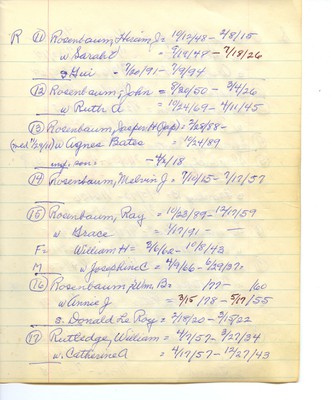 R (11) Rosenbaum, Hiram J = 10/12/48 - 2/8/15
w Sarah = 9/19/47 - 7/18/26
s - 7/20/91 - 7/9/94
(12) Rosenbaum, John = 8/20/50 - 3/4/26
w Ruth A = 10/24/69 - 4/11/45
(13) Rosenbaum, Jasper H (Jap) = 2/28/88 -
w Agnes Bates = 10/24/89
inf. son = - 4/2/18
(14) Rosenbaum, Melvin J = 7/10/15 - 7/17/57
(15) Rosenbaum, Ray = 10/23/89 - 12/17/59
w Grace = 7/17/91 - -
F = William H = 2/6/62 - 10/8/43
M w Josephine C = 4/9/66 - 6/29/37
(16) Rosenbaum, Wm. B = /77 - /60
w Annie J = 3/15/78 - 5/17/55
s. Donald Le Roy = 2/18/20 - 3/18/22
(17) Rutledge, William = 4/7/57 - 9/27/34
w. Catherine A = 4/17/57 - 12/27/43